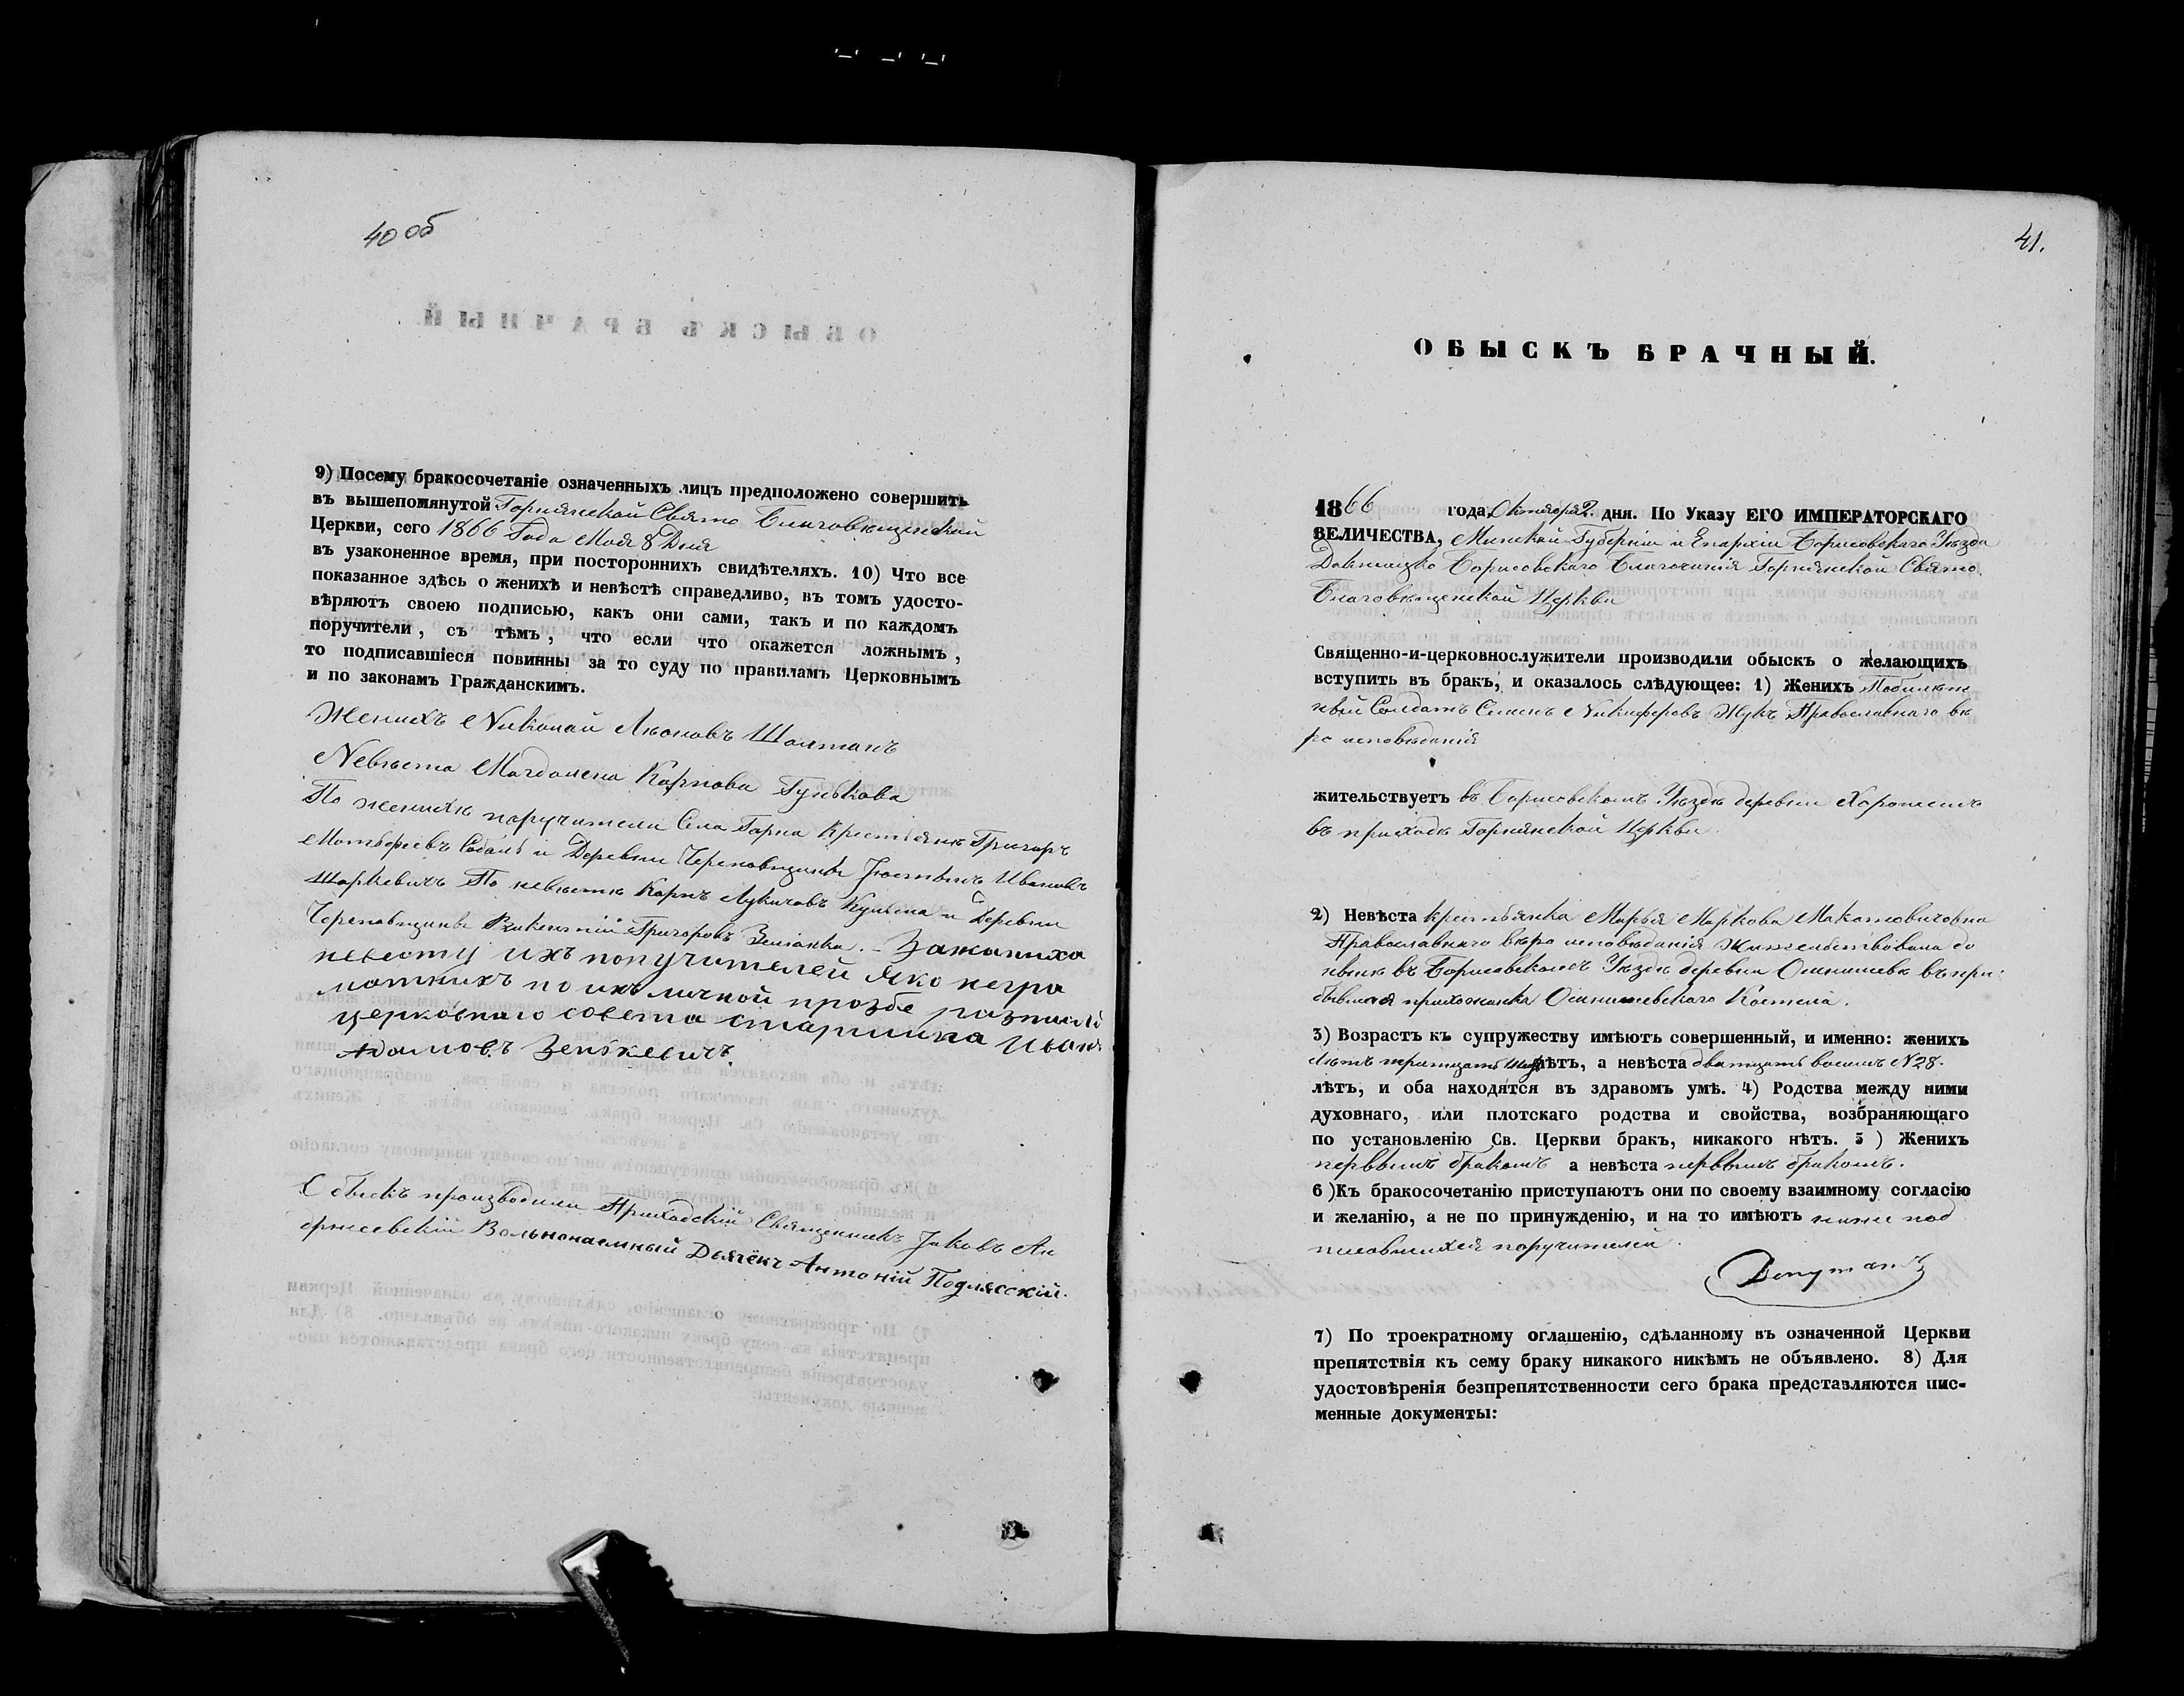 40 об
9) Посему бракосочетаніе означенныхъ лицъ предположено совершить
въ вышепомянутой Горнянской Свято Благовѣщенской
Церкви, сего 1866 Года Мая 8 Дня
въ узаконенное время, при постороннихъ свидѣтеляхъ. 10) Что все
показанное здѣсь о женихѣ и невѣстѣ справедливо, въ томъ удосто-
вѣряютъ своею подписью, какъ они сами, такъ и по каждомъ
поручители, съ тѣмъ, что если что окажется ложнымъ,
то подписавшіеся повинны за то суду по правиламъ Церковнымъ
и по законамъ Гражданскимъ.
Женихъ Николай Леоновъ Шолтанъ
Невѣста Магдалена Карпова Гунькова
По женихѣ поручители Села Горна Крестьянъ Григоръ
Матвѣевъ и Деревни Череповщины Іюстынъ Ивановъ
Шаркевичъ По невѣстѣ Карпъ Лукичовъ и Деревни
Череповщины Викентій Григоровъ Зеліонка. - За жаниха
невесту ихъ попучителей Яко негра
мотныхъ по ихъ личной прозбе
церковнаго совета старшина Иван
Адамовъ Зенькевичъ.
Обыскъ производили Приходскій Священникъ Іаковъ Ан
држеевскій Вольнонаемный Дьячёкъ Антоній Подлясскій.
41.
ОБЫСКЪ БРАЧНЫЙ.
1866 года Октября 2. дня. По Указу ЕГО ИМПЕРАТОРСКАГО
ВЕЛИЧЕСТВА, Минской Губерніи и Епархіи Борисовскаго Уѣзда
Докшицко Борисовскаго Благочинія Горнянской Свято
Благовѣщенской Церкви
Священно-и-церковнослужители производили обыскъ о желающихъ
вступить въ бракъ, и оказалось слѣдующее: 1) Женихъ
Солдатъ Семенъ Никифоровъ Жукъ Православнаго вѣ
ро исповѣданія
жительствуетъ въ Борисовскомъ Уѣздѣ деревни
въ приходѣ Горнянской Церкви.
2) Невѣста крестьянка Марья Маркова
Православнаго вѣро исповѣданія жительствовала до
нынѣ въ Борисовскомъ Уѣздѣ деревни въ при
бывшая прихожанка Костела.
3) Возрастъ къ супружеству имѣютъ совершенный, и именно: женихъ
Лѣтъ тритцать лѣтъ, а невѣста дватцать восемь N 28.
лѣтъ, и оба находятся въ здравомъ умѣ. 4) Родства между ними
духовнаго, или плотскаго родства и свойства, возбраняющаго
по установленію Св. Церкви бракъ, никакого нѣтъ. 5) Женихъ
первымъ бракомъ а невѣста первымъ бракомъ.
6) Къ бракосочетанію приступаютъ они по своему взаимному согласію
и желанію, а не по принужденію, и на то имѣютъ ниже под
писавшихся поручителей.
7) По троекратному оглашенію, сдѣланному въ означенной Церкви
препятствія къ сему браку никакого никѣмъ не объявлено. 8) Для
удостовѣренія безпрепятственности сего брака представляются пис-
менные документы: